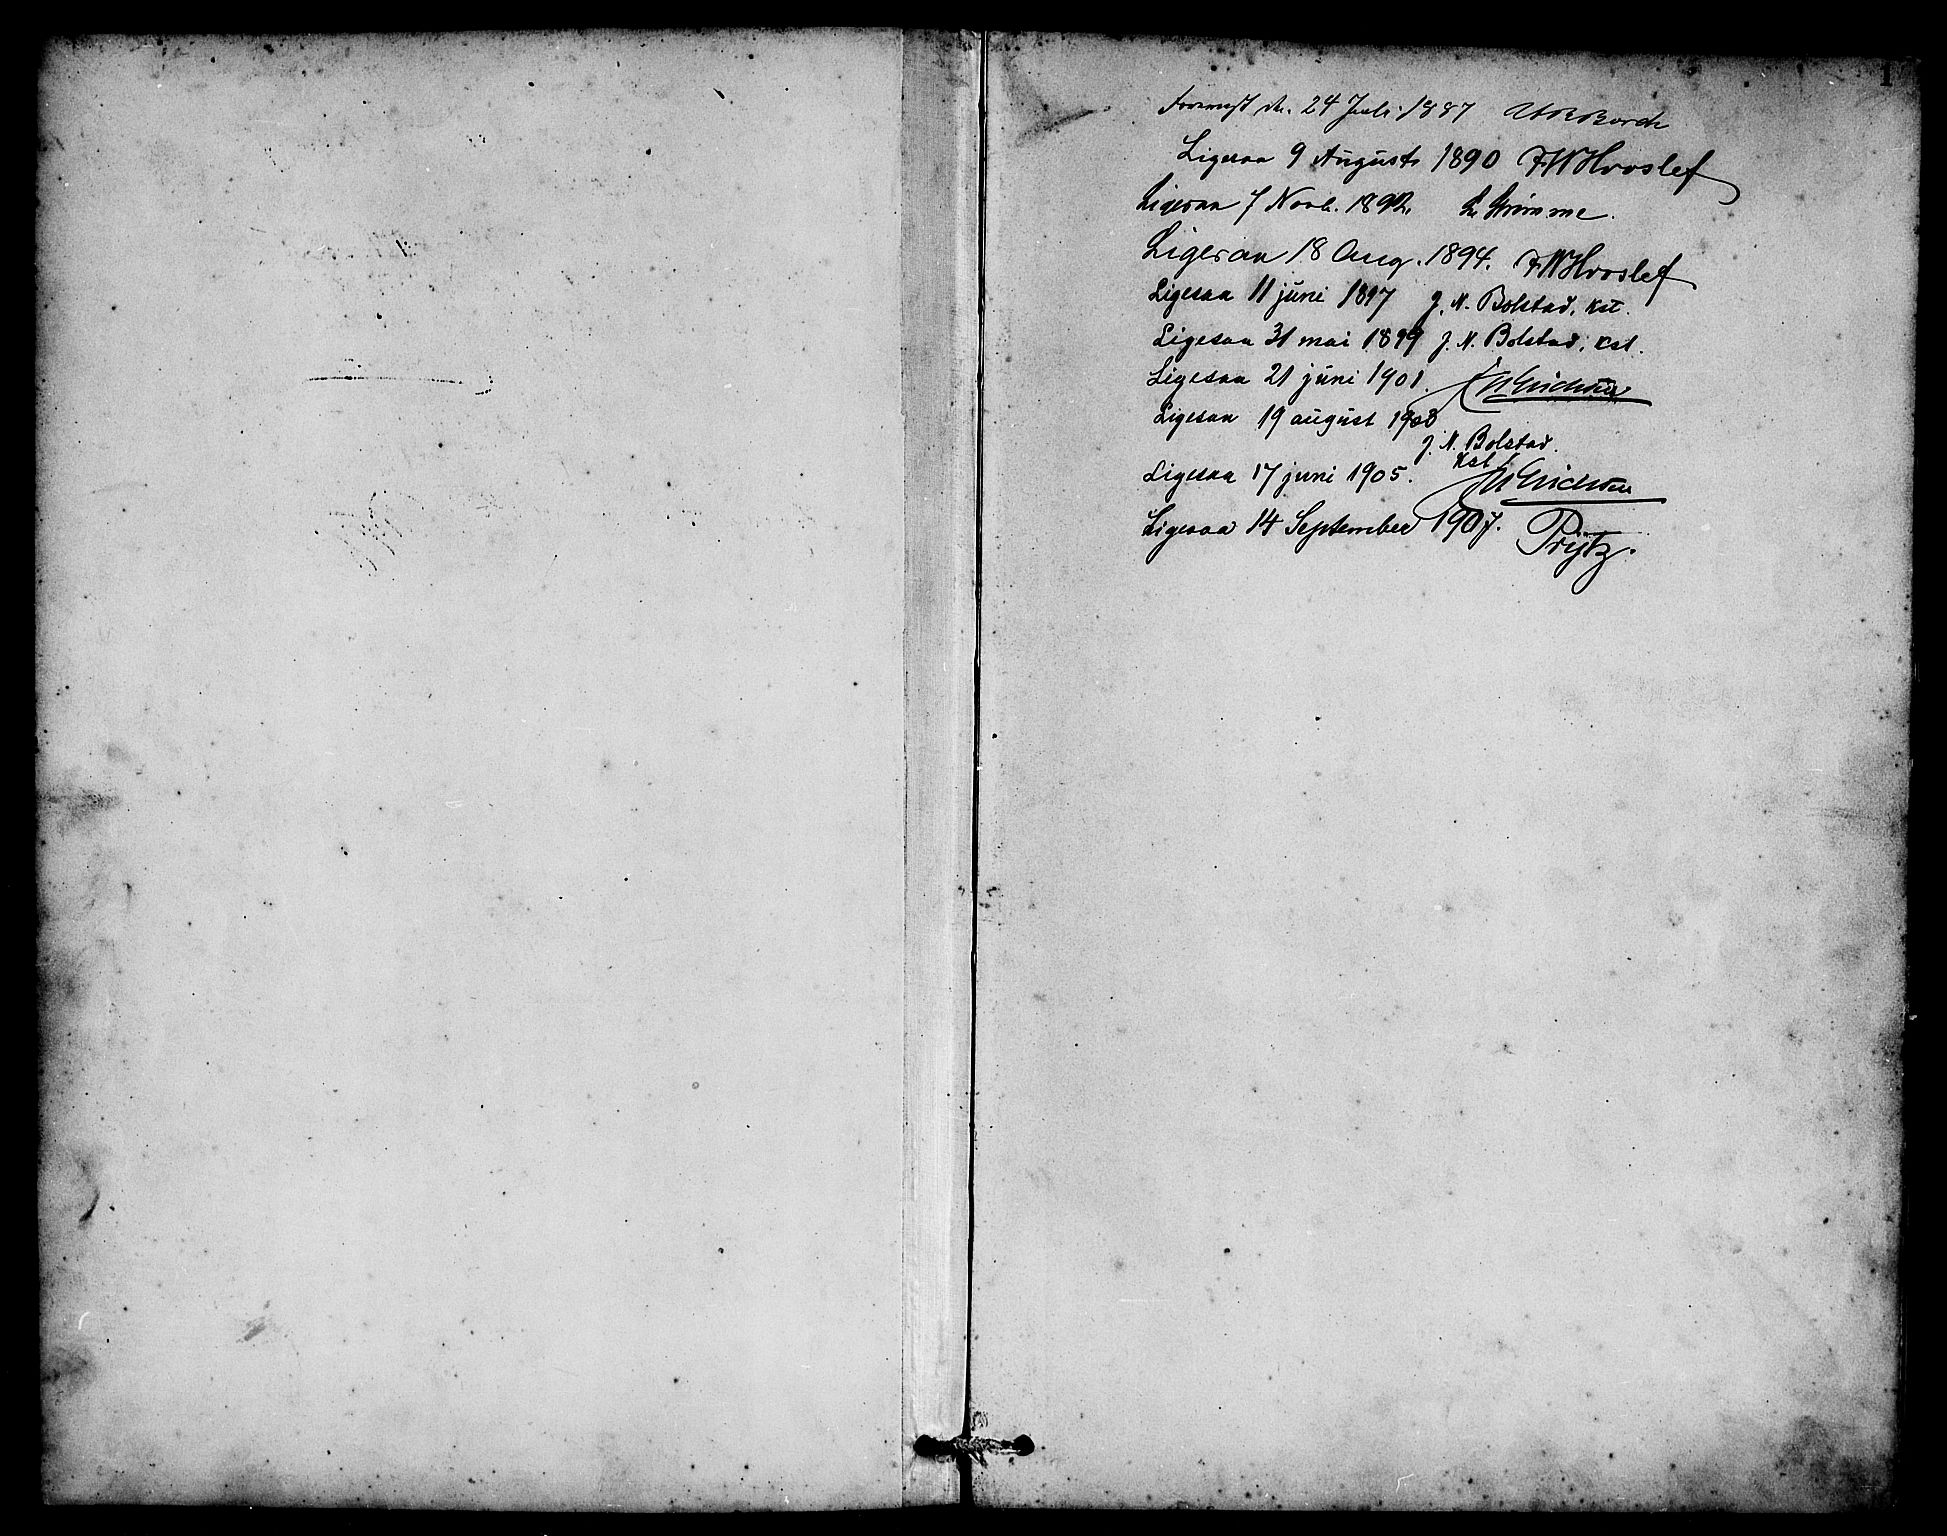 1
24 Juli 1887
Ligesaa 9 August 1890 FWHvoslef
Ligesaa 7 Novb. 1892.
Ligesaa 18 Aug. 1894. FWHvoslef
Ligesaa 11 juni 1897 J. N. Bolstad, kst.
Ligesaa 31 mai 1899 J. N. Bolstad, kst.
Ligesaa 21 juni 1901.
Ligesaa 19 august 1903
J. N. Bolstad.
kst
Ligesaa 17 juni 1905.
Ligesaa 14 September 1907. Prytz.